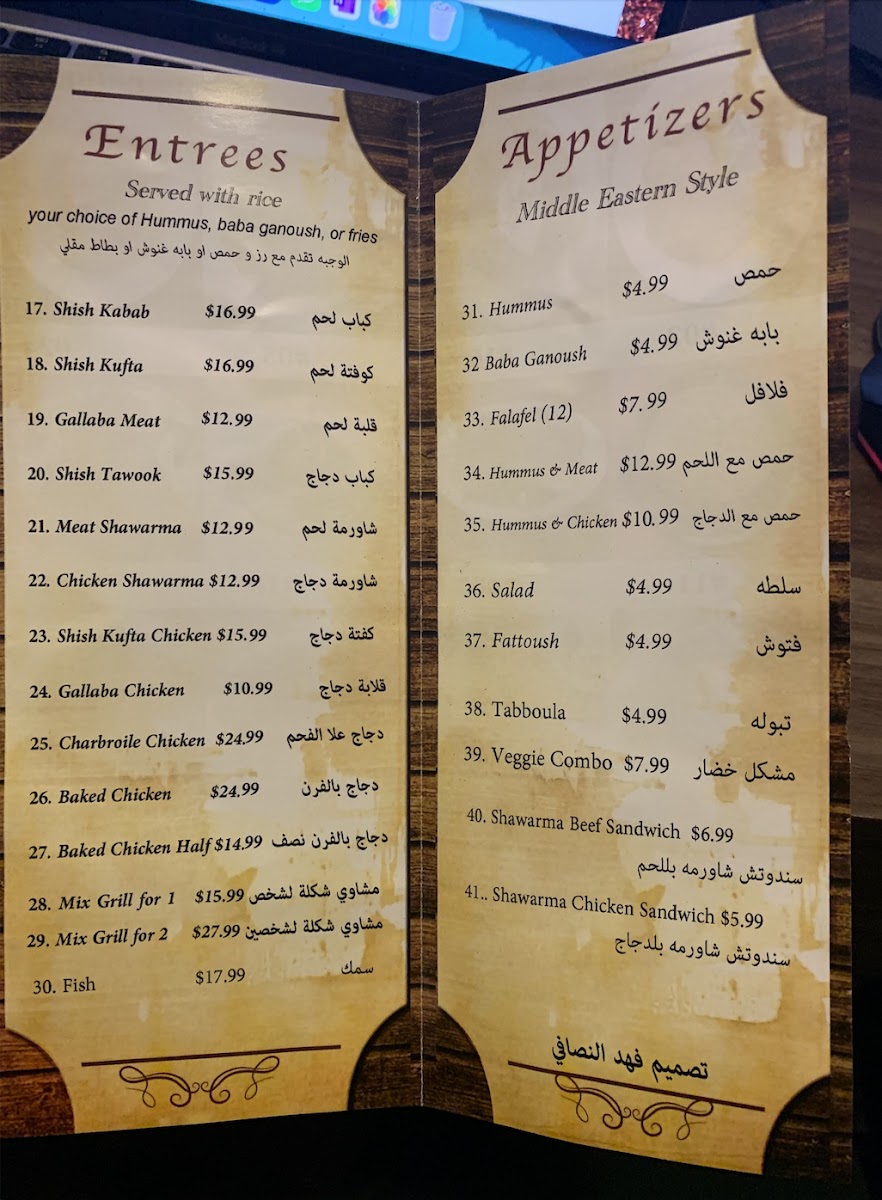 Entrees
Served with rice
your choice of Hummus, baba ganoush, or fries
الوجبه تقدم مع رز و حمص او بابه غنوش او بطاط مقلي
17. Shish Kabab $16.99 كباب لحم
18. Shish Kufta $16.99 كوفتة لحم
19. Gallaba Meat $12.99 قلبة لحم
20. Shish Tawook $15.99 كباب دجاج
21. Meat Shawarma $12.99 شاورمة لحم
22. Chicken Shawarma $12.99 شاورمة دجاج
23. Shish Kufta Chicken $15.99 كفتة دجاج
24. Gallaba Chicken $10.99 قلابة دجاج
25. Charbroile Chicken $24.99 دجاج علا الفحم
26. Baked Chicken $24.99 دجاج بالفرن
27. Baked Chicken Half $14.99 دجاج بالفرن نصف
28. Mix Grill for 1 $15.99 مشاوي شكلة لشخص
29. Mix Grill for 2 $27.99 مشاوي شكلة لشخصين
30. Fish $17.99 سمك
Appetizers
Middle Eastern Style
31. Hummus $4.99 حمص
32 Baba Ganoush $4.99 بابه غنوش
33. Falafel (12) $7.99 فلافل
34. Hummus & Meat $12.99 حمص مع اللحم
35. Hummus & Chicken $10.99 حمص مع الدجاج
36. Salad $4.99 سلطه
37. Fattoush $4.99 فتوش
38. Tabboula $4.99 تبوله
39. Veggie Combo $7.99 مشكل خضار
40. Shawarma Beef Sandwich $6.99
سندوتش شاورمه بللحم
41.. Shawarma Chicken Sandwich $5.99
سندوتش شاورمه بلدجاج
تصميم فهد النصافي